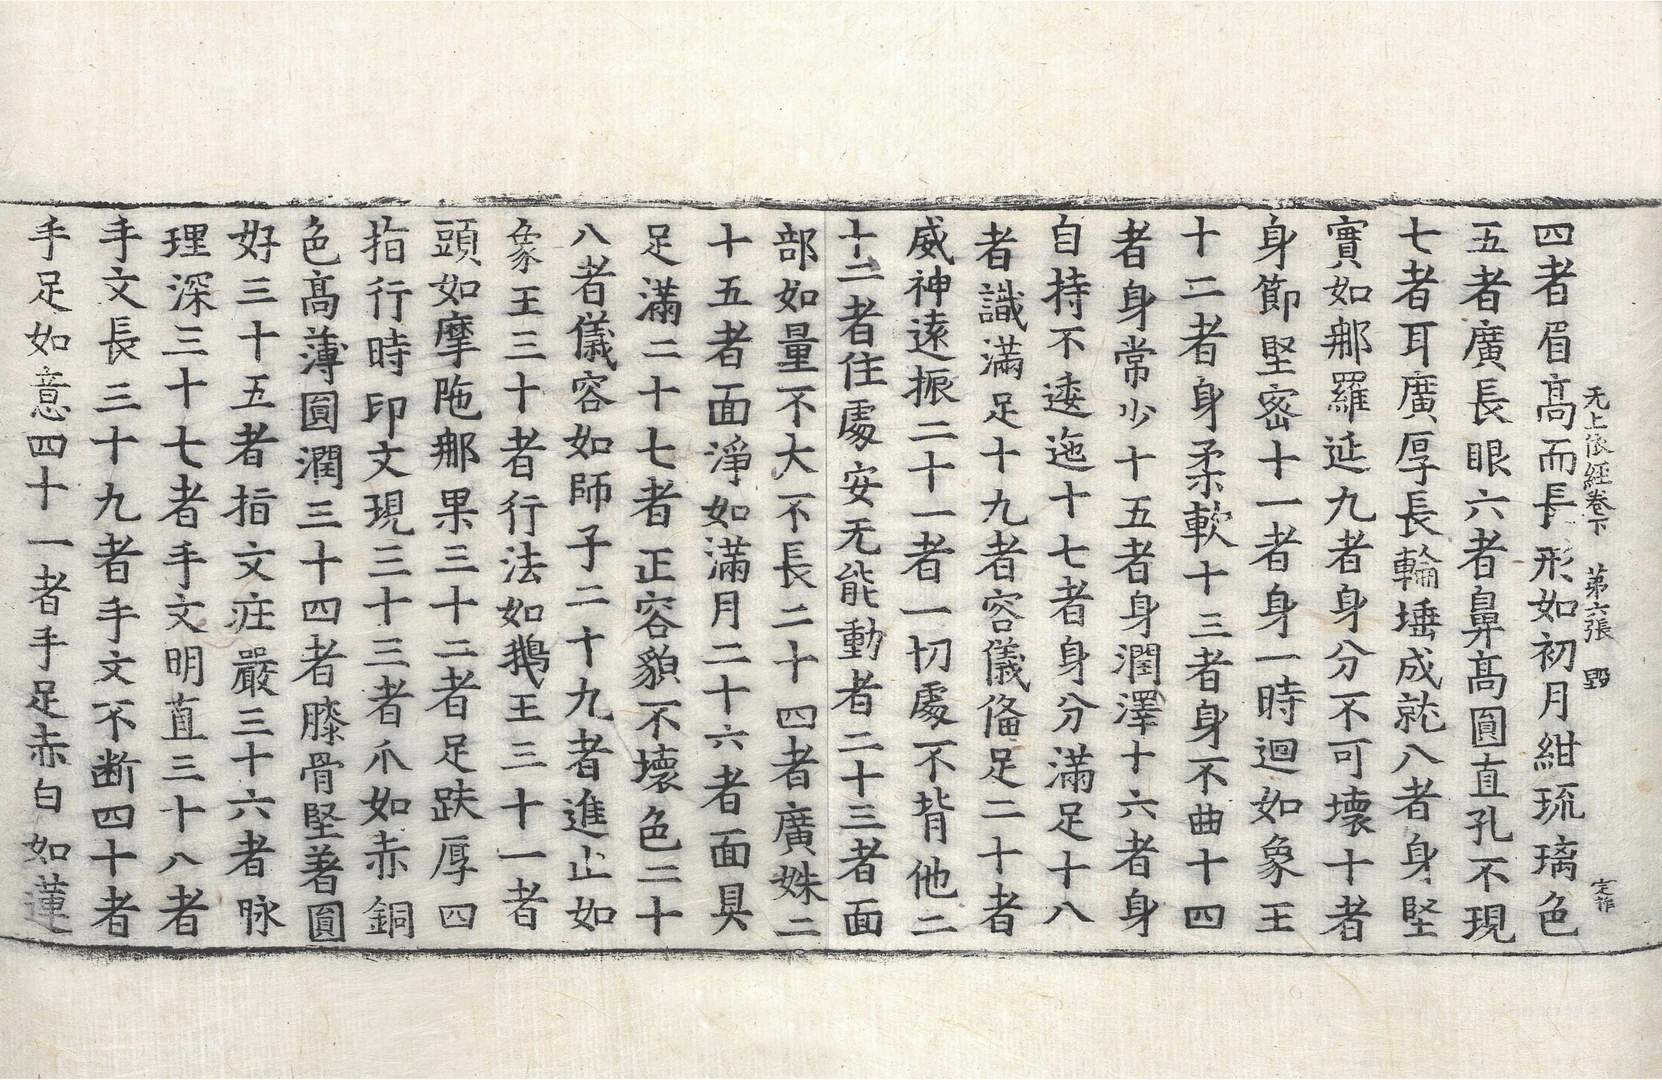 无上依經卷下 第六張 野
定祚
四者眉髙而長形如初月紺琉璃色
五者廣長眼六者鼻髙圓直孔不現
七者耳廣厚長輪埵成就八者身堅
實如那羅延九者身分不可壞十者
身節堅密十一者身一時迴如象王
十二者身柔軟十三者身不曲十四
者身常少十五者身潤澤十六者身
自持不逶迤十七者身分滿足十八
者識滿足十九者容儀俻足二十者
威神逺振二十一者一切處不背他二
十二者住處安无能動者二十三者面
部如量不大不長二十四者廣姝二
十五者面淨如滿月二十六者面具
足滿二十七者正容貌不壞色二十
八者儀容如師子二十九者進止如
象王三十者行法如鵝王三十一者
頭如摩陁那果三十二者足趺厚四
指行時印文現三十三者爪如赤銅
色髙薄圓潤三十四者膝骨堅著圓
好三十五者指文疘嚴三十六者脉
理深三十七者手文明直三十八者
手文長三十九者手文不断四十者
手足如意四十一者手足赤白如蓮